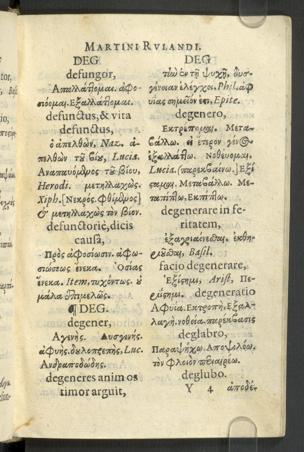 MARTINI RVLANDI.
DEG
defungor,
Απαλλάττομαι. ἀφο-
σιόομαι. Εξαλλάττομαι.
defunctus, & vita
defunctus,
ὁ ἀπελθών, Naz. ἀ-
πελθὼν τοῦ βίου, Lucia.
Αναπαυόμενος τοῦ βίου,
Herodi. μετηλλαχὼς,
Xiph. [Νεκρός. Φθίμενος]
& μετηλλαχὼς τὸν βίον.
defunctoriè, dicis
causa,
Πρὸς ἀφοσίωσιν. ἀφο-
σιώσεως ἕνεκα. Ὁσίας
ἕνεκα. Item, τυχόντως. οὐ
μάλα ἐπιμελῶς.
¶ DEG.
degener,
Αγενής. Δυσγενὴς.
ἀφυής. δουλοπρεπὴς, Luc.
Ανδραποδώδης.
degeneres animos
timor arguit,
DEG
τῶν ἐν τῇ ψυχῇ, δυσ-
γένειαν ἐλέγχει. Phil. ἀφ
υίας σημεῖόν ἐστι, Epict.
degenero,
Εκτρέπομαι. Μετα-
βάλλω. εἰς ἕτερον γένος
ἐξαλλάττω. Νοθεύομαι.
Lucia. (παρεκβαίνω.] Εξί-
σταμαι. Μεταβάλλω. Με-
ταπίπτω. Εκπίπτω.
degenerare in fe-
ritatem,
ἐξαγριαίνεσθαι, ἐκθη-
ριοῦσθαι, Basil.
facio degenerare,
Εξίστημι, Arist, Πε-
ριίστημι. degeneratio
Αφυΐα. Εκτροπή. Εξαλ-
λαγή. νοθεία. παρέκβασις
deglabro,
Παραψήχω. Αποψιλόω.
τὸν φλοιὸν περιαιρέω.
deglubo.
Y 4 ἀποδέ-